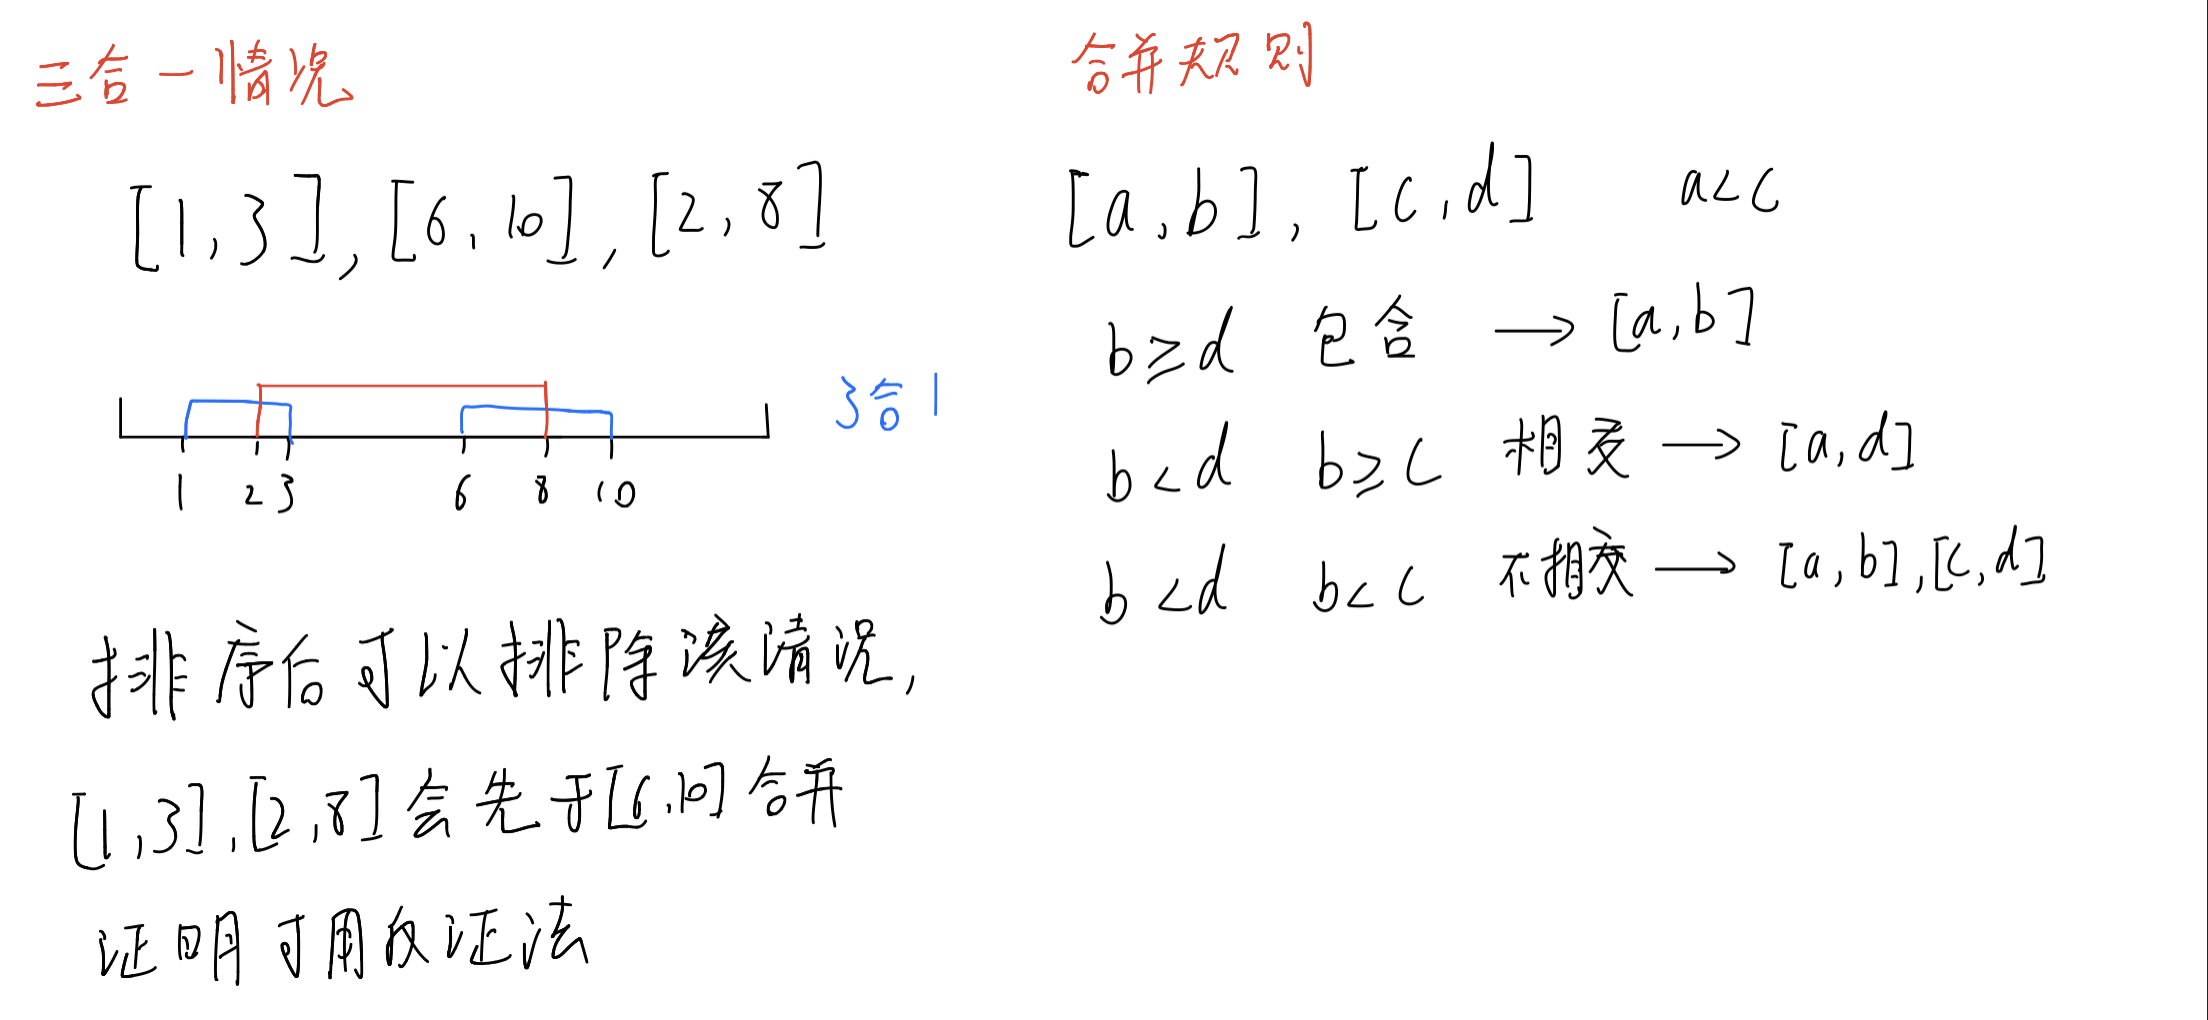 三合一情况
[1,3],[6,10],[2,8]
3合1
1 2 3 6 8 10
排序后可以排除该情况,
[1,3],[2,8]会先于[6,10]合并
证明可用反证法
合并规则
[a,b],[c,d] a<c
b≥d 包含 → [a,b]
b<d b≥c 相交 → [a,d]
b<d b<c 不相交 → [a,b],[c,d]